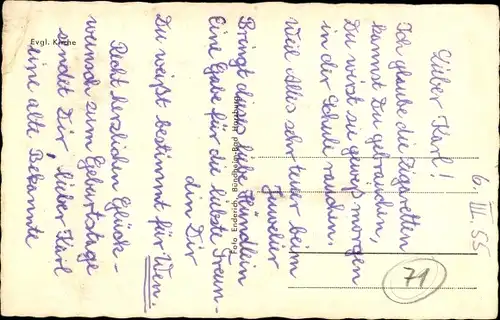 Evgl. Kirche
6. III. 55
Lieber Karl!
Ich glaube die Zigaretten
kannst Du gebrauchen,
Du wirst sie gewiß morgen
in der Schule rauchen.
Weil Alles sehr teuer beim
Juwelier
Bringt dieses liebe Hündlein
Eine Gabe für die liebste Freun-
din Dir
Du weißt bestimmt für Wen.
Recht herzlichen Glück-
wunsch zum Geburtstage
sendet Dir, lieber Karl
eine alte Bekannte
Foto Enderich, Bündheim-Bad Harzburg
71